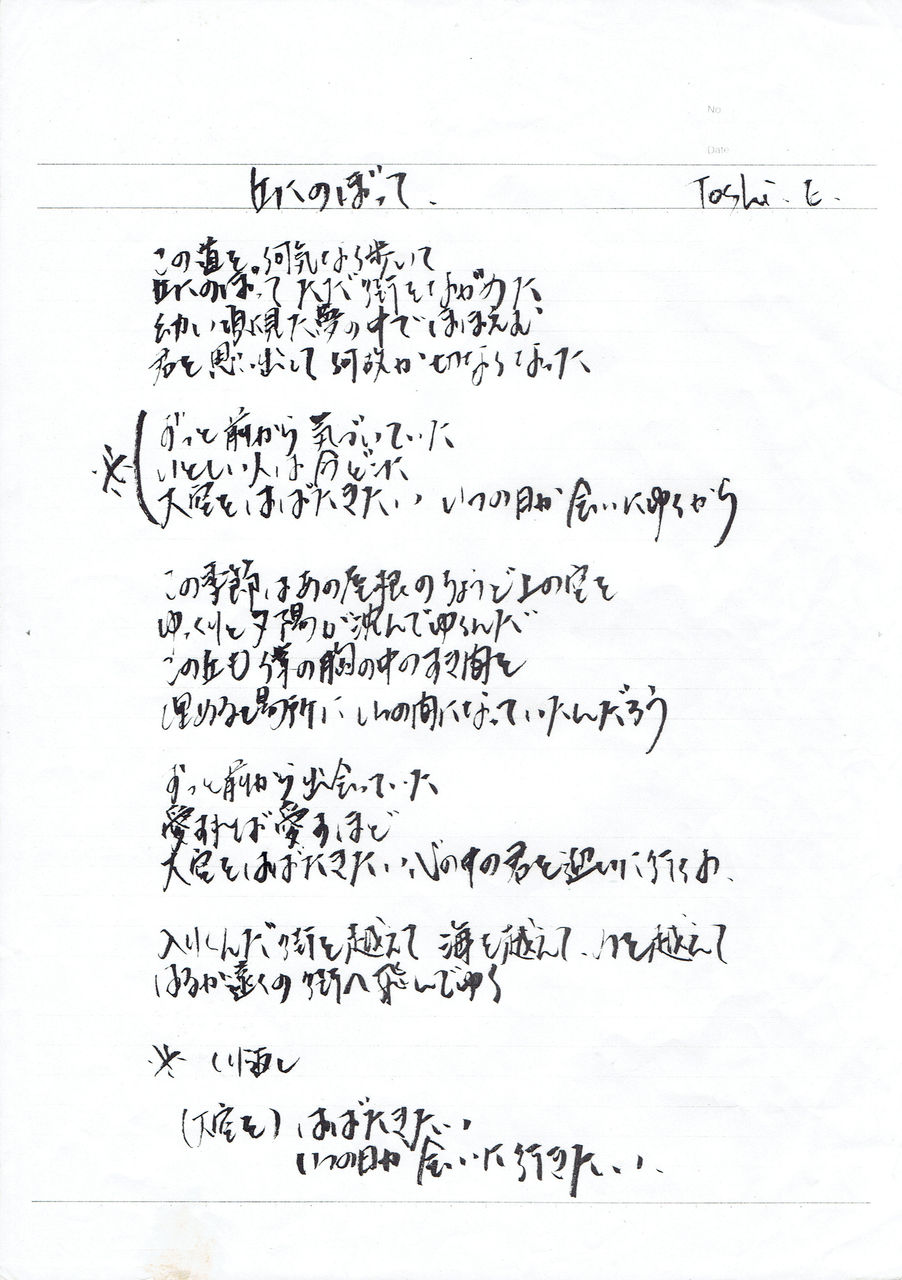 No
Date
丘にのぼって. Toshi. E.
この道を 何気なく歩いて
丘にのぼって ただ街をながめた
幼い頃見た夢の中でほほえむ
君を思い出して 何故か切なくなった
ずっと前から 気づいていた
いとしい人は今どこに
※ 大空をはばたきたい いつの日か 会いにゆくから
この季節はあの屋根のちょうど上の空を
ゆっくりと夕陽が沈んでゆくんだ
この丘も僕の胸の中のすき間を
埋める場所に いつの間になっていたんだろう
ずっと前から出会っていた
愛すれば愛すほど
大空をはばたきたい 心の中の君を迎いに行くよ.
入りくんだ街を越えて 海を越えて、 を越えて
はるか遠くの街へ飛んでゆく
※ くり返し
(大空を) はばたきたい
いつの日か 会いに行きたい.